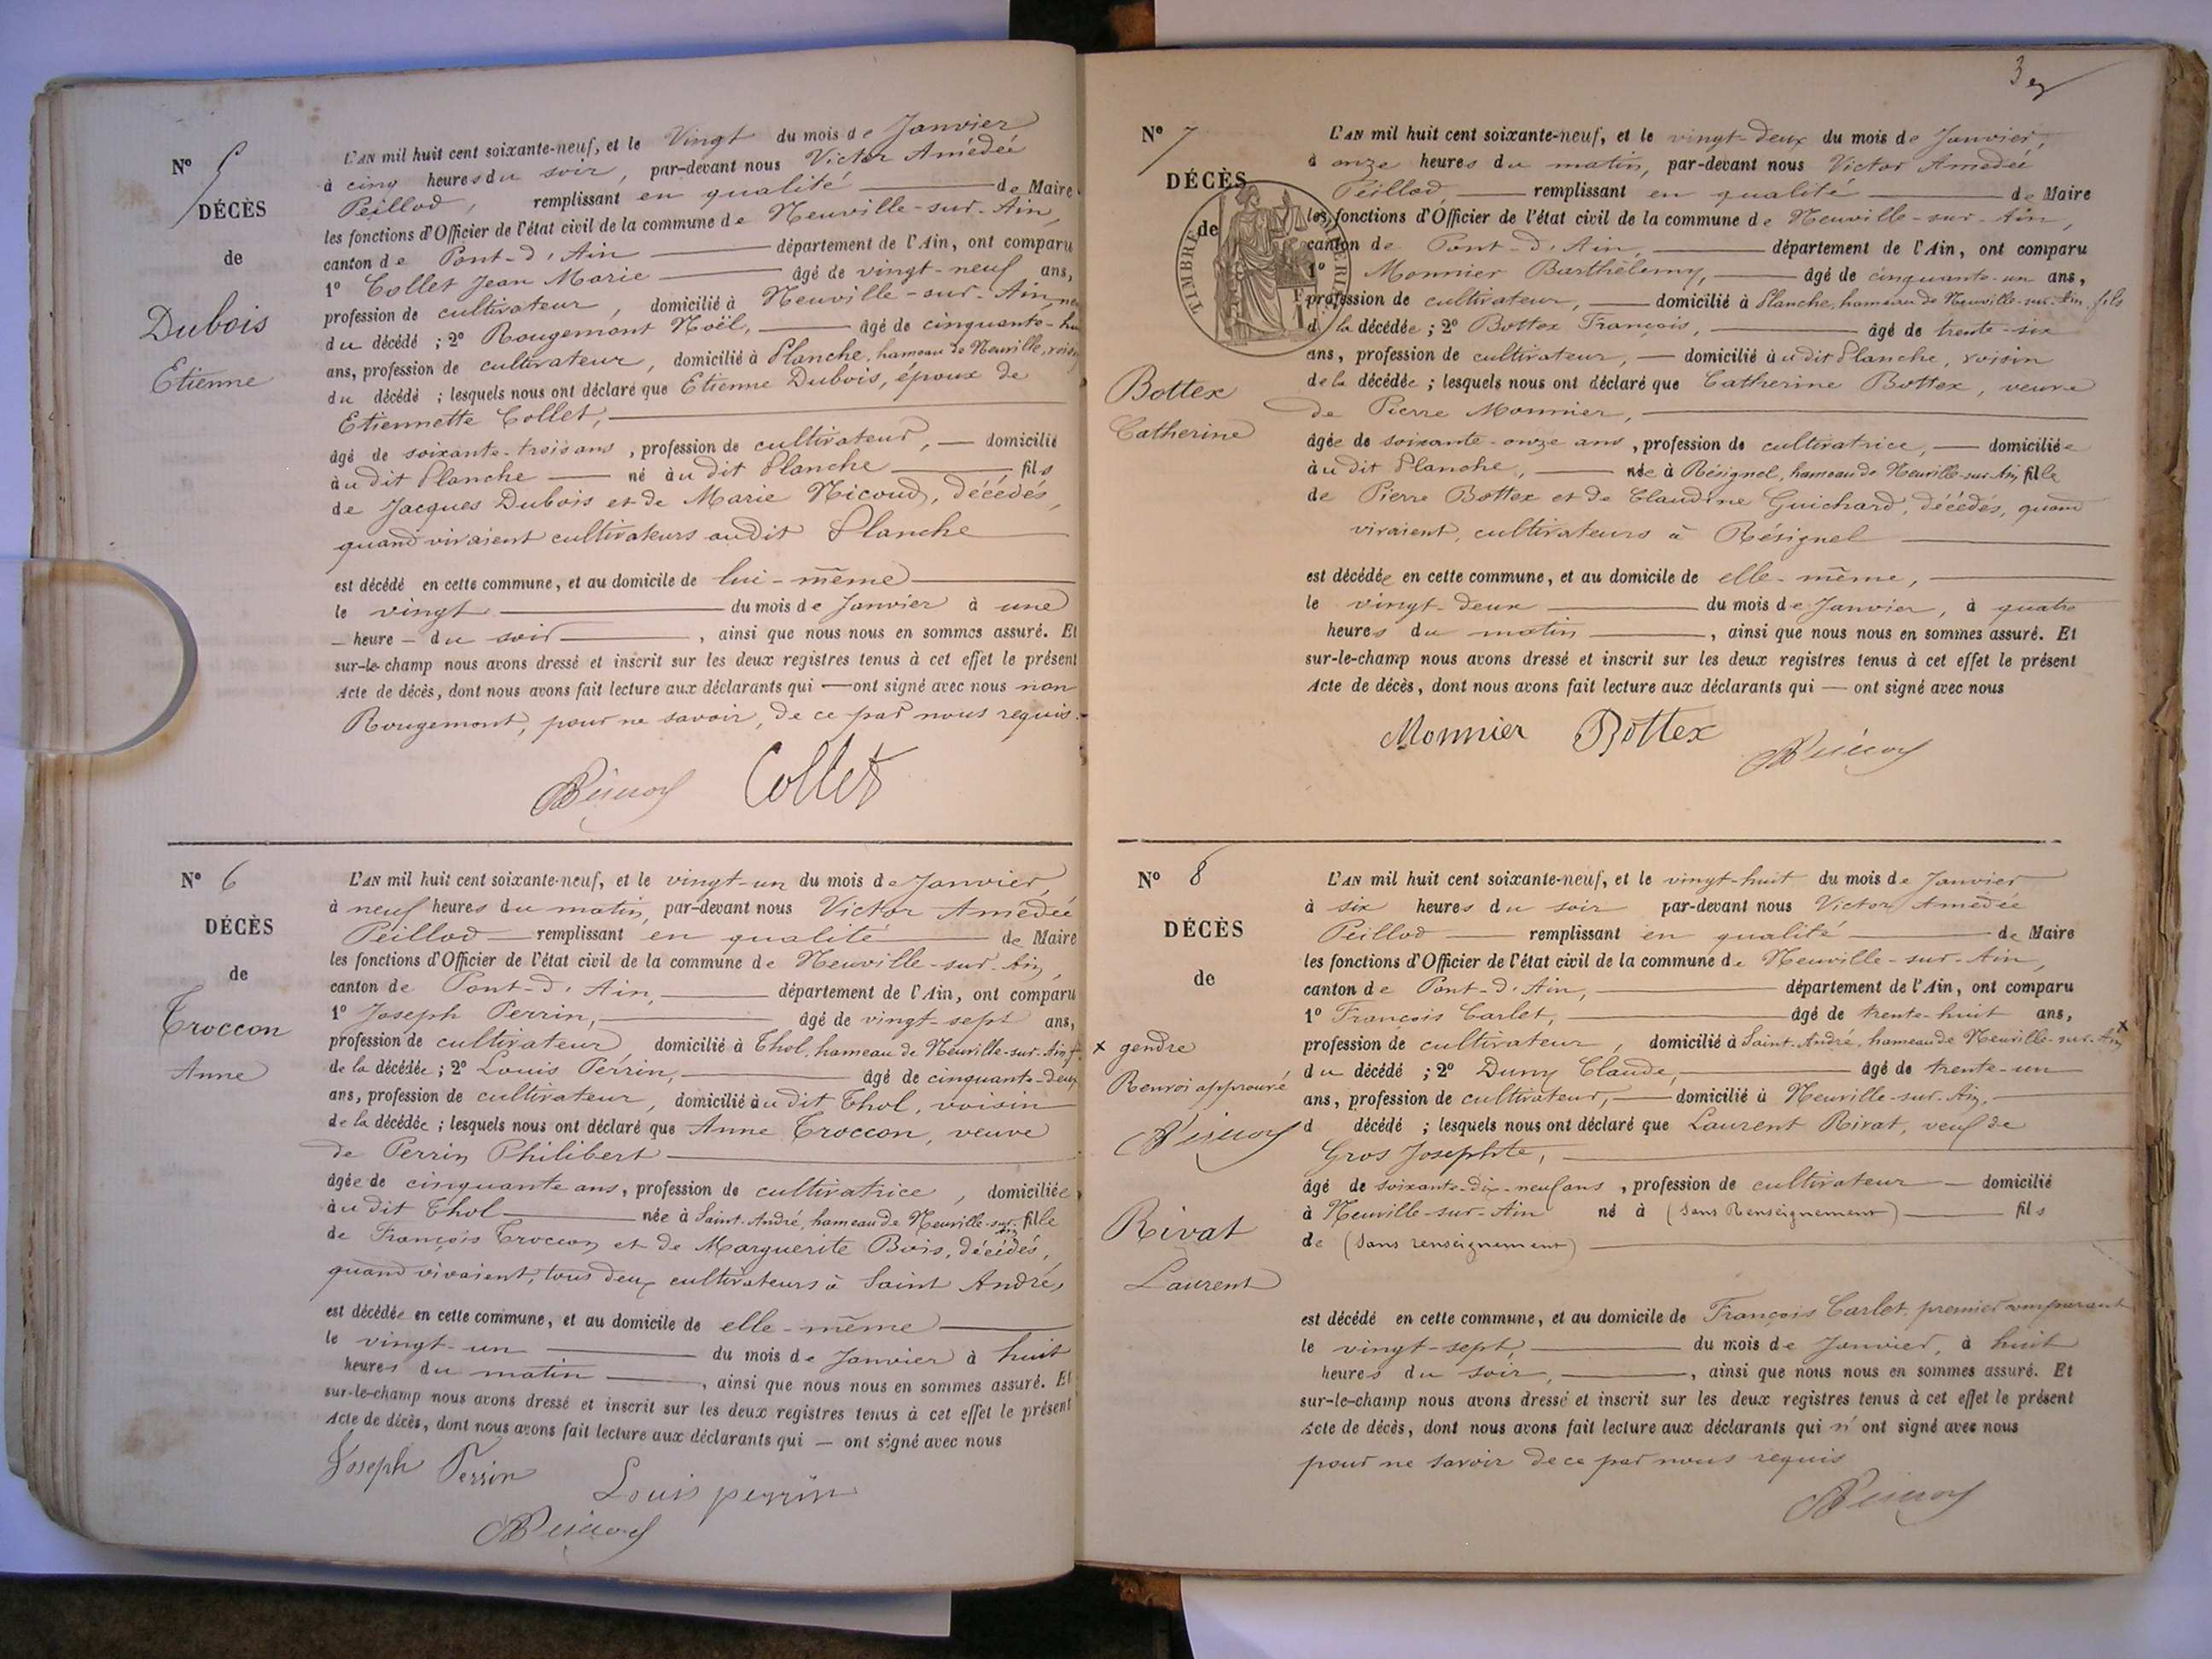 N° 5
DÉCÈS
de
Dubois
Etienne
L'AN mil huit cent soixante-neuf, et le Vingt du mois de Janvier
à cinq heures du soir, par-devant nous Victor Amédée
Peillod, remplissant en qualité de Maire
les fonctions d'Officier de l'état civil de la commune de Neuville-sur-Ain,
canton de Pont-d'Ain département de l'Ain, ont comparu
1° Collet Jean Marie âgé de vingt-neuf ans,
profession de cultivateur, domicilié à Neuville-sur-Ain,
du décédé ; 2° Rougemont Noël, âgé de cinquante-
ans, profession de cultivateur, domicilié à Planche, hameau de Neuville, voisin
du décédé ; lesquels nous ont déclaré que Etienne Dubois, époux de
Etiennette Collet,
âgé de soixante-trois ans, profession de cultivateur, domicilié
à udit Planche né à udit Planche fils
de Jacques Dubois et de Marie Nicoud, décédés,
quand vivaient cultivateurs audit Planche
est décédé en cette commune, et au domicile de lui-même
le vingt du mois de Janvier à une
heure du soir, ainsi que nous nous en sommes assuré. Et
sur-le-champ nous avons dressé et inscrit sur les deux registres tenus à cet effet le présent
Acte de décès, dont nous avons fait lecture aux déclarants qui ont signé avec nous non
Rougemont, pour ne savoir, de ce par nous requis.
Collet
N° 6
DÉCÈS
de
Troccon
Anne
L'AN mil huit cent soixante-neuf, et le vingt-un du mois de Janvier,
à neuf heures du matin, par-devant nous Victor Amédée
Peillod remplissant en qualité de Maire
les fonctions d'Officier de l'état civil de la commune de Neuville-sur-Ain,
canton de Pont-d'Ain, département de l'Ain, ont comparu
1° Joseph Perrin, âgé de vingt-sept ans,
profession de cultivateur domicilié à Thol, hameau de Neuville-sur-Ain,
de la décédée ; 2° Louis Perrin, âgé de cinquante-deux
ans, profession de cultivateur, domicilié à udit Thol, voisin
de la décédée ; lesquels nous ont déclaré que Anne Troccon, veuve
de Perrin Philibert
âgée de cinquante ans, profession de cultivatrice, domiciliée
à udit Thol née à Saint-André, hameau de Neuville-sur-Ain fille
de François Troccon et de Marguerite Bois, décédés,
quand vivaient, tous deux cultivateurs à Saint André,
est décédée en cette commune, et au domicile de elle-même
le vingt-un du mois de Janvier à huit
heures du matin, ainsi que nous nous en sommes assuré. Et
sur-le-champ nous avons dressé et inscrit sur les deux registres tenus à cet effet le présent
Acte de décès, dont nous avons fait lecture aux déclarants qui — ont signé avec nous
Joseph Perrin
Louis perrin
3
N° 7
DÉCÈS
de
TIMBRE IMPÉRIAL
Bottex
Catherine
L'AN mil huit cent soixante-neuf, et le vingt-deux du mois de Janvier,
à onze heures du matin, par-devant nous Victor Amédée
Peillod remplissant en qualité de Maire
les fonctions d'Officier de l'état civil de la commune de Neuville-sur-Ain,
canton de Pont-d'Ain, département de l'Ain, ont comparu
1° Monnier Barthélemy, âgé de cinquante-un ans,
profession de cultivateur, domicilié à Planche, hameau de Neuville-sur-Ain, fils
d la décédée ; 2° Bottex François, âgé de trente-six
ans, profession de cultivateur, domicilié à udit Planche, voisin
de la décédée ; lesquels nous ont déclaré que Catherine Bottex, veuve
de Pierre Monnier,
âgée de soixante-onze ans, profession de cultivatrice, domiciliée
à udit Planche, née à Résignel, hameau de Neuville-sur-Ain, fille
de Pierre Bottex et de Claudine Guichard, décédés, quand
vivaient, cultivateurs à Résignel
est décédée en cette commune, et au domicile de elle-même,
le vingt-deux du mois de Janvier, à quatre
heures du matin, ainsi que nous nous en sommes assuré. Et
sur-le-champ nous avons dressé et inscrit sur les deux registres tenus à cet effet le présent
Acte de décès, dont nous avons fait lecture aux déclarants qui — ont signé avec nous
Monnier Bottex
N° 8
DÉCÈS
de
x gendre
Renvoi approuvé
Rivat
Laurent
L'AN mil huit cent soixante-neuf, et le vingt-huit du mois de Janvier
à six heures du soir par-devant nous Victor Amédée
Peillod remplissant en qualité de Maire
les fonctions d'Officier de l'état civil de la commune de Neuville-sur-Ain,
canton de Pont-d'Ain, département de l'Ain, ont comparu
1° François Carlet, âgé de trente-huit ans,
profession de cultivateur, domicilié à Saint-André, hameau de Neuville-sur-Ain x
du décédé ; 2° Duny Claude, âgé de trente-un
ans, profession de cultivateur, domicilié à Neuville-sur-Ain,
d décédé ; lesquels nous ont déclaré que Laurent Rivat, veuf de
Gros Josephte,
âgé de soixante-dix-neuf ans, profession de cultivateur domicilié
à Neuville-sur-Ain né à (Sans Renseignement) fils
de (Sans renseignement)
est décédé en cette commune, et au domicile de François Carlet, premier comparant
le vingt-sept, du mois de Janvier, à huit
heures du soir, ainsi que nous nous en sommes assuré. Et
sur-le-champ nous avons dressé et inscrit sur les deux registres tenus à cet effet le présent
Acte de décès, dont nous avons fait lecture aux déclarants qui n'ont signé avec nous
pour ne savoir de ce par nous requis